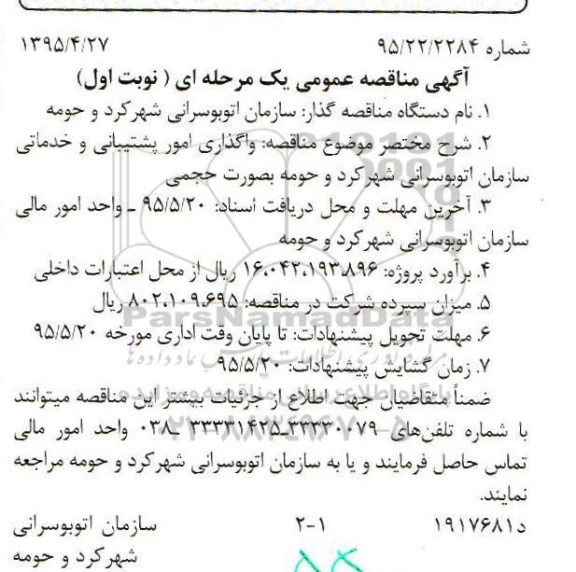 شماره ۹۵/۲۲/۲۲۸۴ ۱۳۹۵/۴/۲۷
آگهی مناقصه عمومی یک مرحله ای ( نوبت اول)
۱. نام دستگاه مناقصه گذار: سازمان اتوبوسرانی شهرکرد و حومه
۲. شرح مختصر موضوع مناقصه: واگذاری امور پشتیبانی و خدماتی
سازمان اتوبوسرانی شهرکرد و حومه بصورت حجمی
۳. آخرین مهلت و محل دریافت اسناد: ۹۵/۵/۲۰ ـ واحد امور مالی
سازمان اتوبوسرانی شهرکرد و حومه
۴. برآورد پروژه: ۱۶،۰۴۲،۱۹۳،۸۹۶ ریال از محل اعتبارات داخلی
۵. میزان سپرده شرکت در مناقصه: ۸۰۲،۱۰۹،۶۹۵ ریال
ParsNamadData
۶. مهلت تحویل پیشنهادات: تا پایان وقت اداری مورخه ۹۵/۵/۲۰
۷. زمان گشایش پیشنهادات: ۹۵/۵/۲۰
ضمناً متقاضیان جهت اطلاع از جزئیات بیشتر این مناقصه میتوانند
با شماره تلفن‌های ۳۳۳۳۰۰۷۹ـ۳۳۳۳۱۴۲۵ ـ۰۳۸ واحد امور مالی
تماس حاصل فرمایند و یا به سازمان اتوبوسرانی شهرکرد و حومه مراجعه
نمایند.
د۱۹۱۷۶۸۱ ۲-۱ سازمان اتوبوسرانی
شهرکرد و حومه